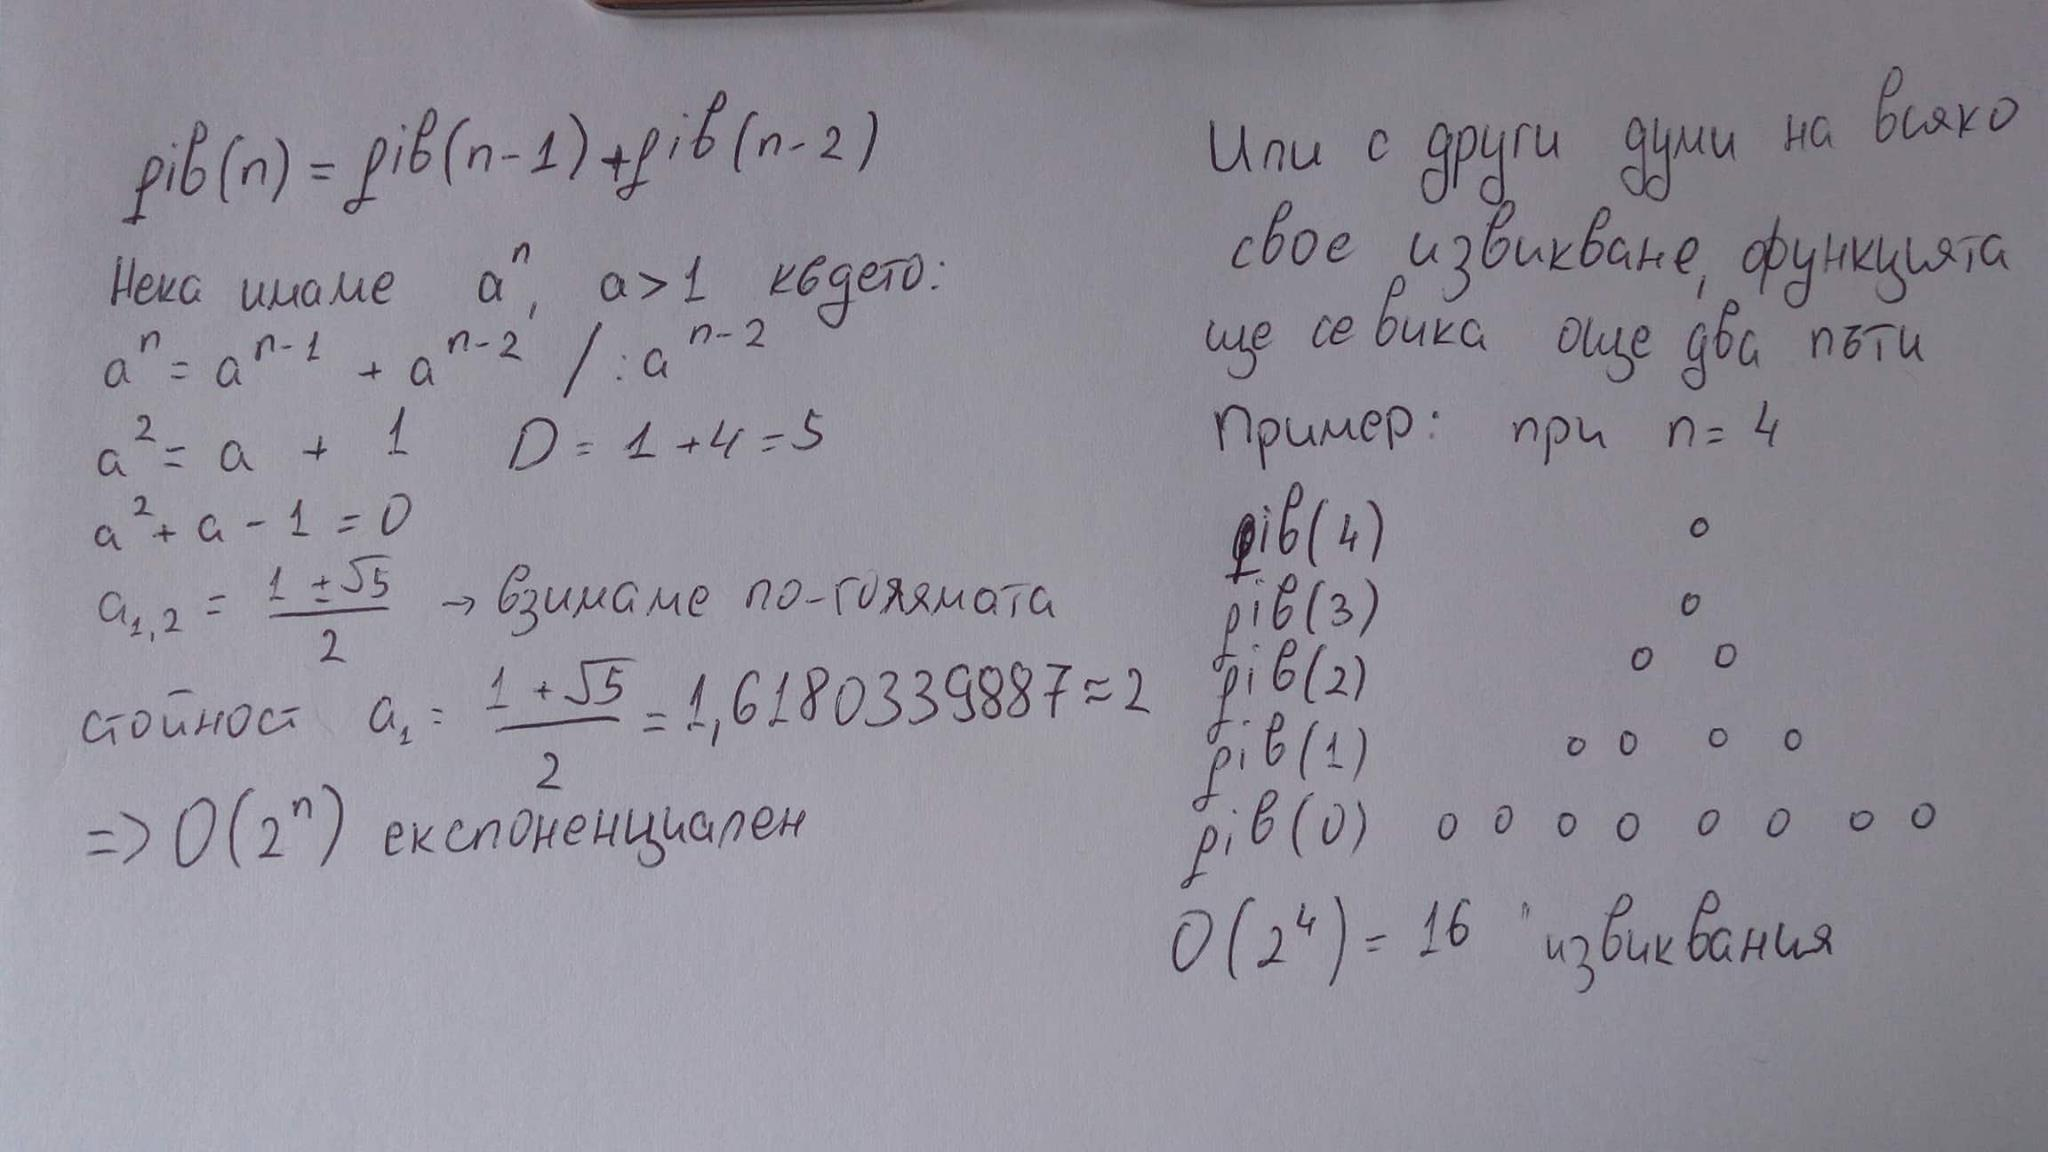 fib(n) = fib(n-1) + fib(n-2)
Нека имаме aⁿ, a > 1 където:
aⁿ = aⁿ⁻¹ + aⁿ⁻² / : aⁿ⁻²
a² = a + 1 D = 1 + 4 = 5
a² + a - 1 = 0
a₁,₂ = (1 ± √5)/2 → взимаме по-голямата
стойност a₁ = (1 + √5)/2 = 1,61803339887 ≈ 2
=> O(2ⁿ) експоненциален
Или с други думи на всяко
свое извикване, функцията
ще се вика още два пъти
Пример: при n = 4
fib(4)
fib(3)
fib(2)
fib(1)
fib(0)
O(2⁴) = 16 извиквания